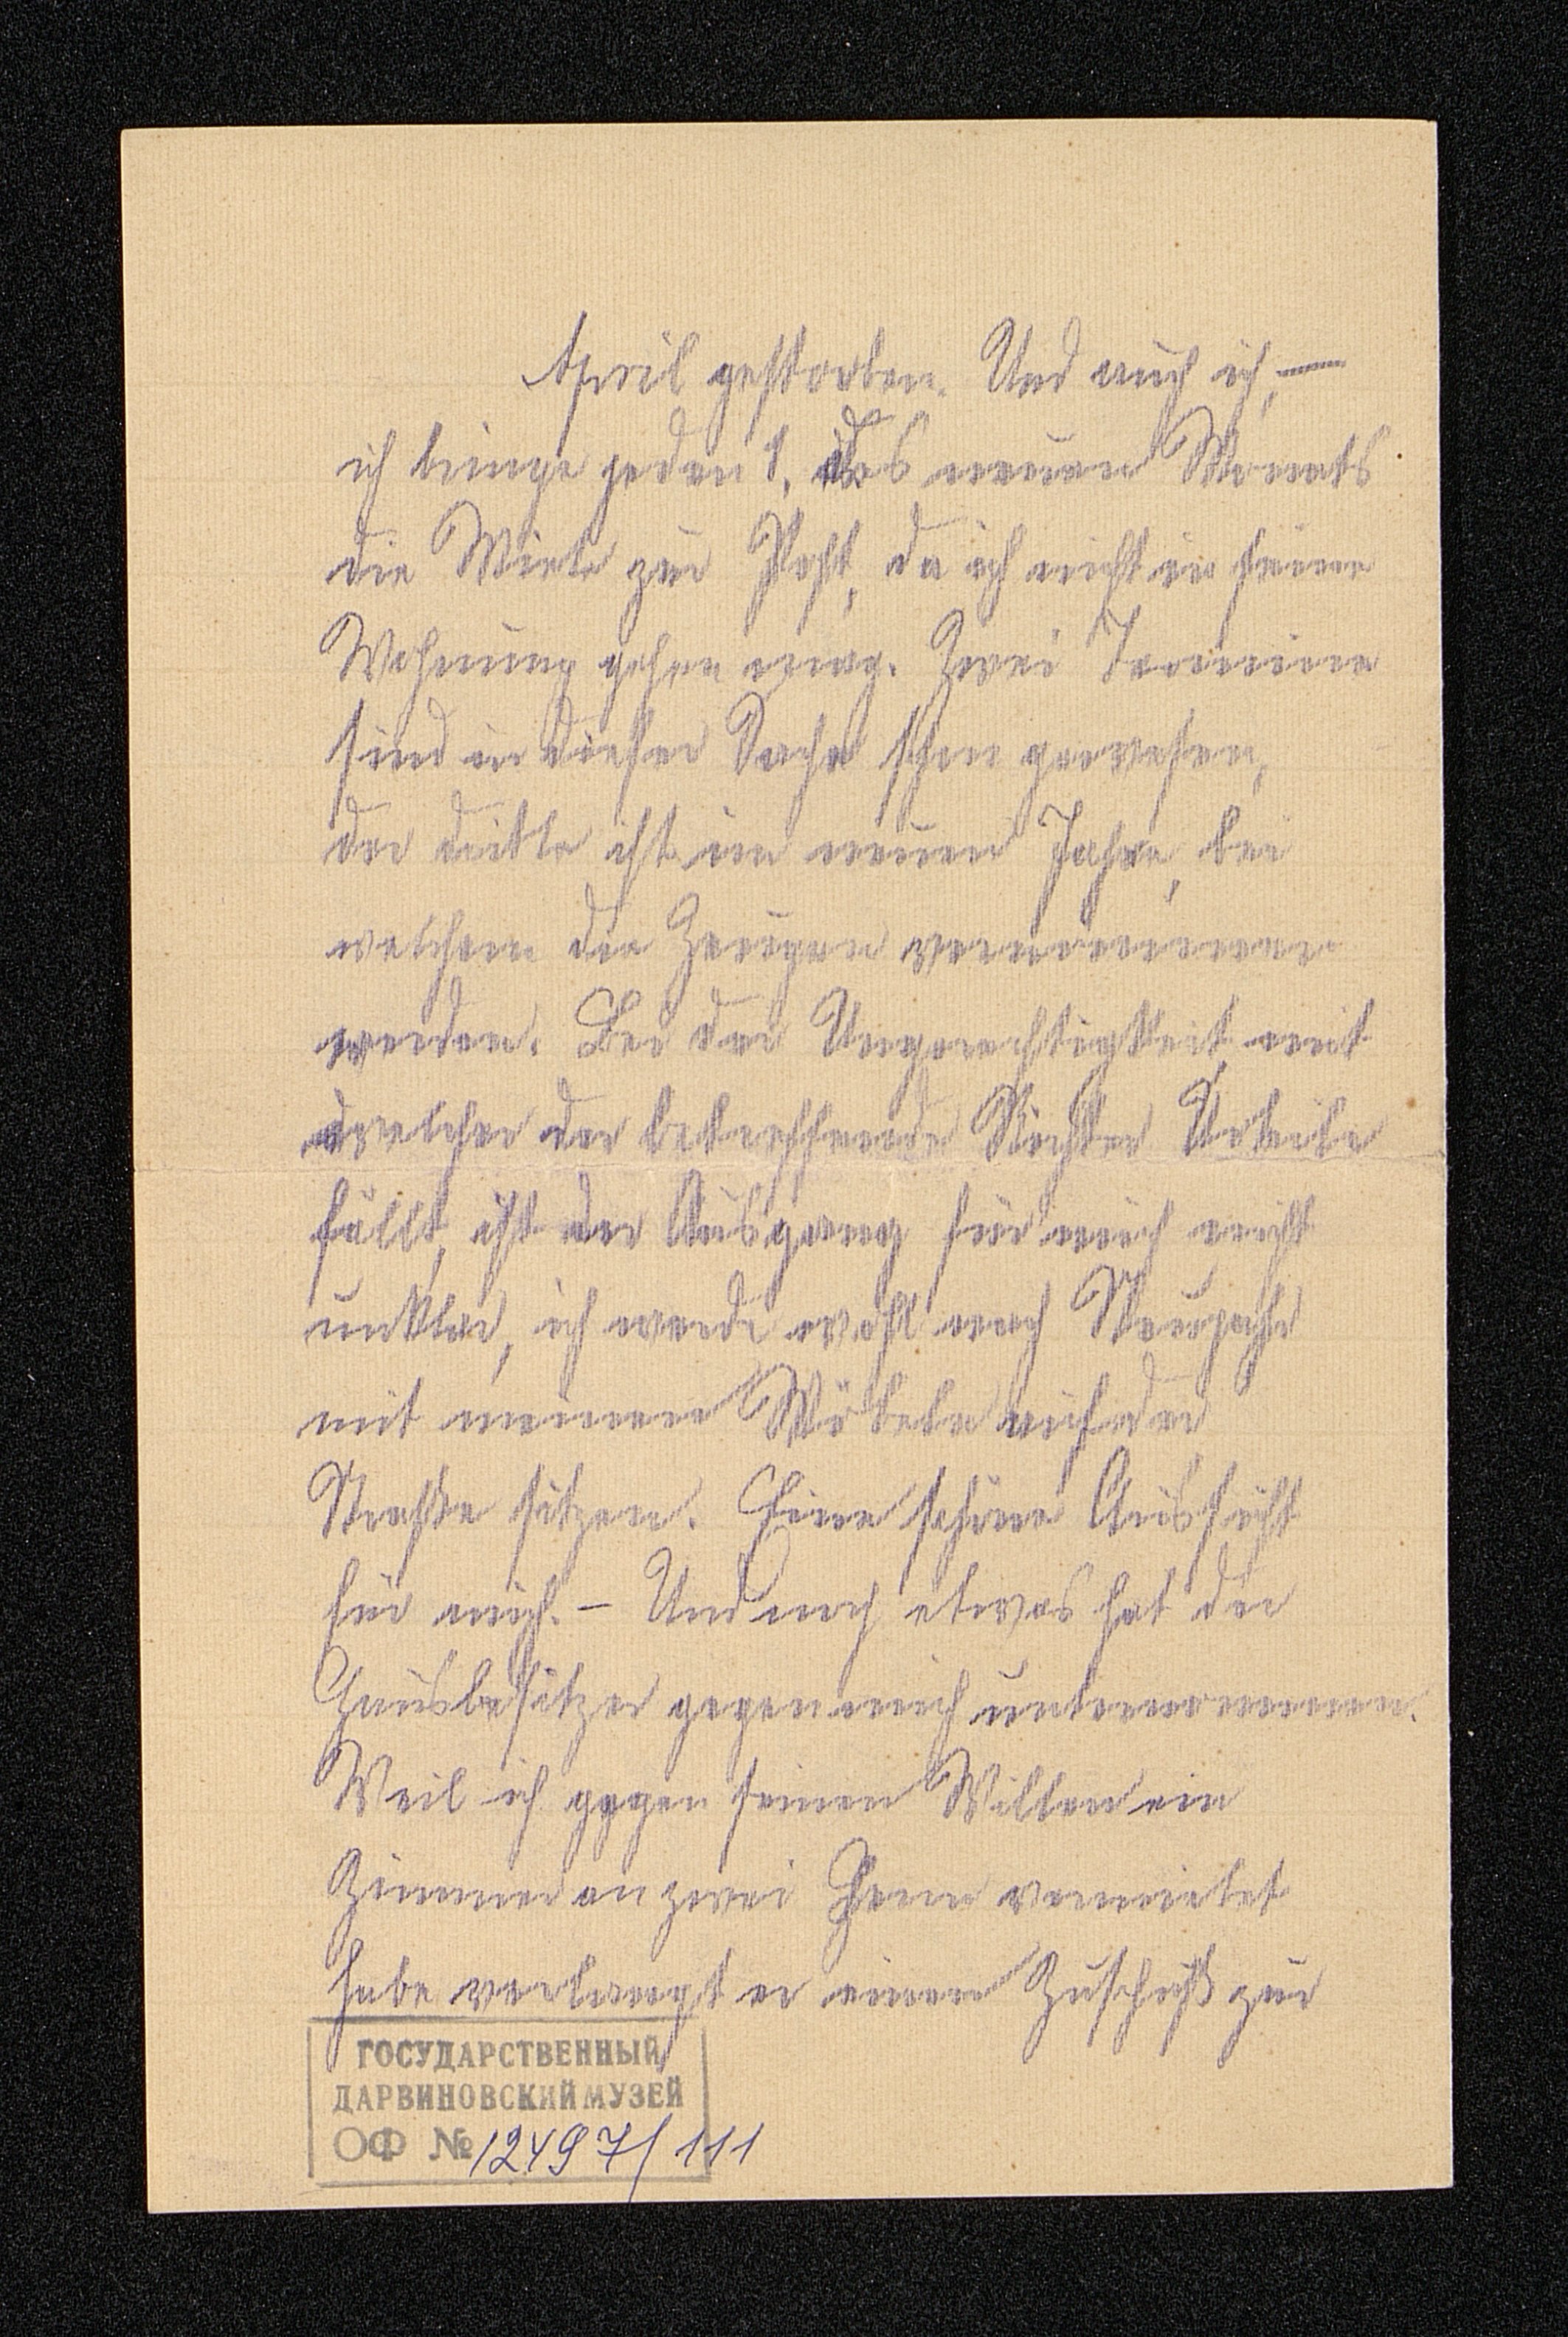 April gestorben. Und auch ich, —
ich bringe jeden 1. des neuen Monats
die Miete zur Post, da ich nicht in seine
Wohnung gehen mag. Zwei Termine
sind in dieser Sache schon gewesen,
der dritte ist im neuen Jahre, bei
welchem die Zeugen vernommen
werden. Bei der Ungerechtigkeit, mit
welcher der betreffende Richter Urteile
fällt, ist der Ausgang für mich nicht
unklar, ich werde wohl nach Neujahr
mit meinen Möbeln auf der
Straße sitzen. Eine schöne Aussicht
für mich. – Und noch etwas hat der
Hausbesitzer gegen mich unternommen.
Weil ich gegen seinen Willen ein
Zimmer an zwei Herrn vermietet
habe verlangt er einen Zuschuß zur
ГОСУДАРСТВЕННЫЙ
ДАРВИНОВСКИЙ МУЗЕЙ
ОФ № 12497/111